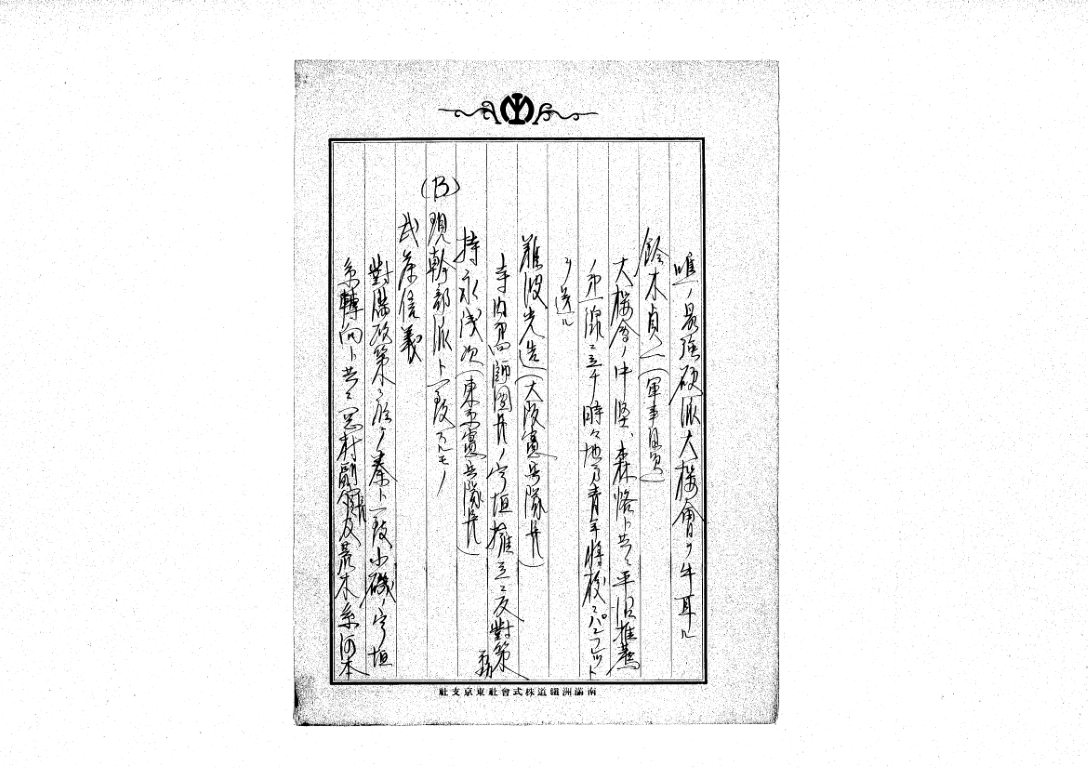 唯一ノ最強硬派大桜會ヲ牛耳ル
鈴木貞一(軍事課員)
大桜會ノ中堅、森恪ト共ニ平沼推薦
ノ第一線ニ立チ時々地方青年将校ニパンフレット
ヲ送ル
難波光造(大阪憲兵隊長)
寺内第四師団長ノ宇垣擁立ニ反對策動
持永浅次(東京憲兵隊長)
(B)現幹部派ト一致スルモノ
武藤信義
對満政策ニ於テ秦ト一致小磯ノ宇垣
系轉向ト共ニ岡村寧次及荒木系河本
南滿洲鐵道株式會社東京支社